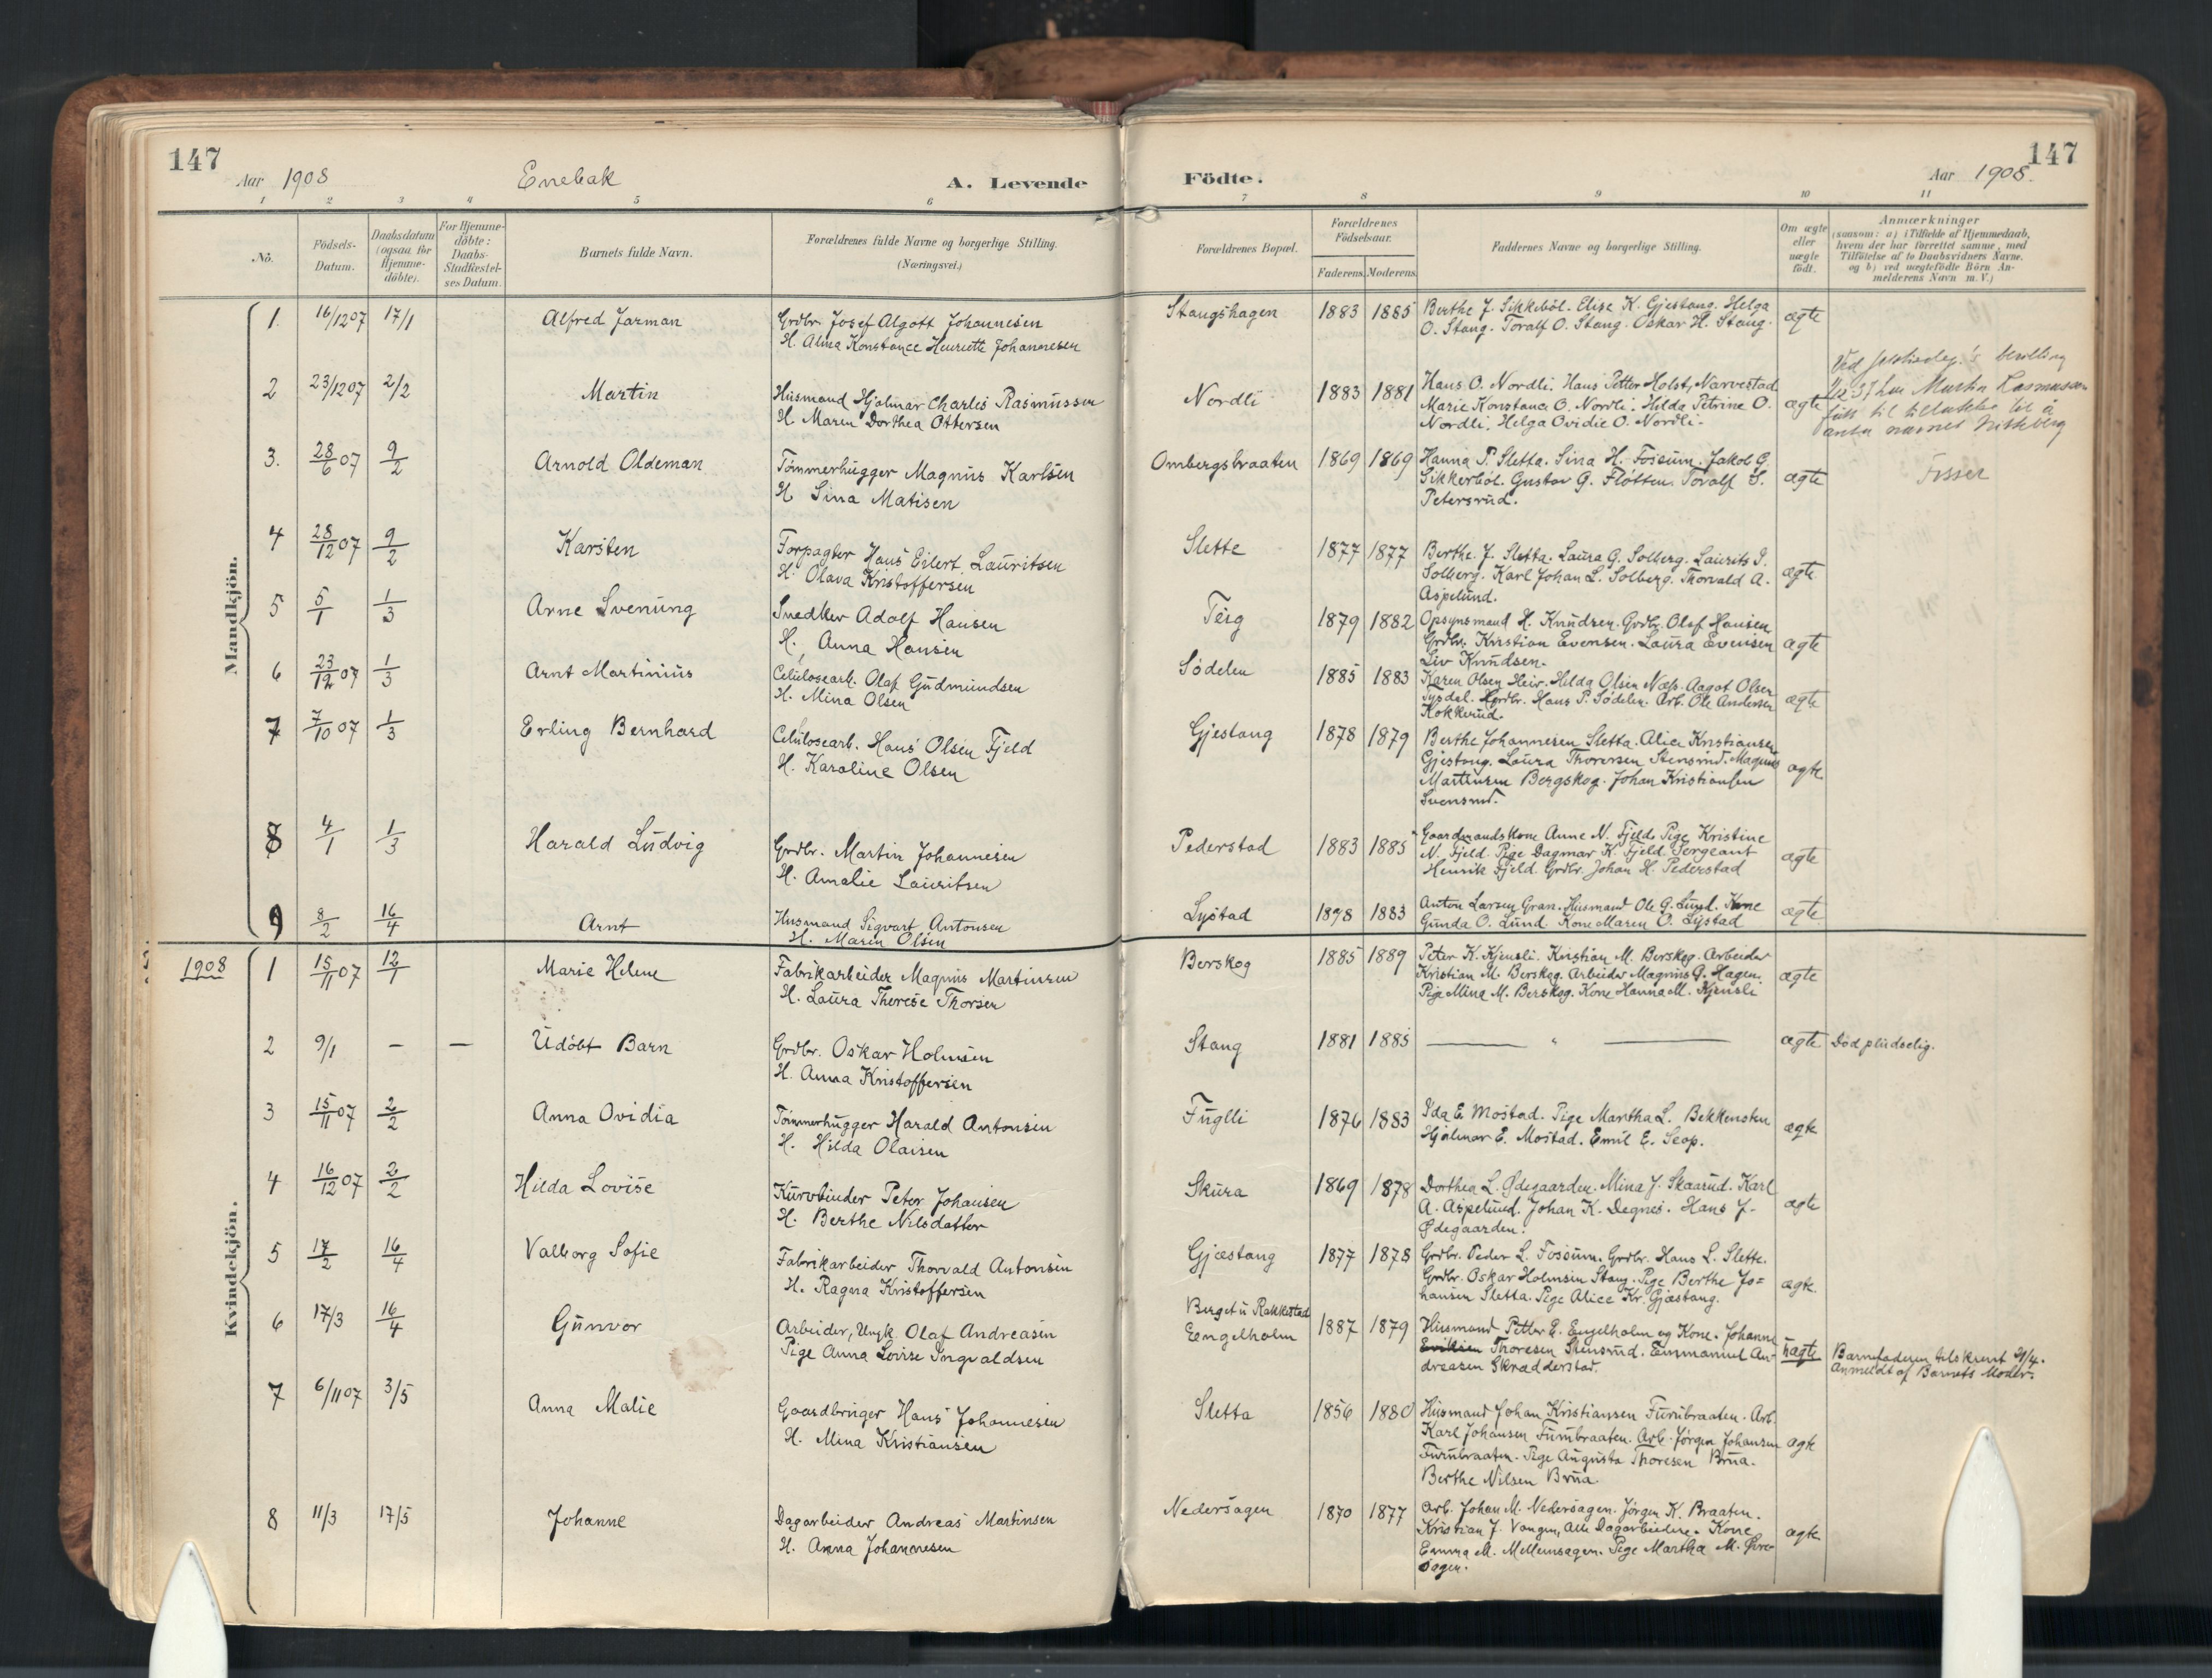 147
Aar 1908
Enebak
A. Levende
Födte.
Aar 1908.
147
1 2 3 4 5 6 7 8 9 10 11
No.
Födsels-
Datum.
Daabsdatum
(ogsaa for
Hjemme-
döbte).
For Hjemme-
döbte:
Daabs-
Stadfæstel-
ses Datum.
Barnets fulde Navn.
Forældrenes fulde Navne og borgerlige Stilling.
(Næringsvei.)
Forældrenes Bopæl.
Forældrenes
Födselsaar.
Faderens. Moderens.
Faddernes Navne og borgerlige Stilling.
Om ægte
eller
uægte
födt.
Anmærkninger
(saasom: a) i Tilfælde af Hjemmedaab,
hvem der har forrettet samme, med
Tilföielse af to Daabsvidners Navne,
og b) ved uægtefödte Börn An-
melderens Navn m. V.)
Mandkjön.
1. 16/12 07 17/1 Alfred Jarman
Grdbr. Josef Algott Johannesen
H. Alma Konstance Henriette Johannesen
Stangshagen 1883 1885
Berthe J. Sikkeböl. Elise K. Gjestang. Helga
O. Stang. Toralf O. Stang. Oskar H. Stang.
ægte
2 23/12 07 2/2 Martin
Husmand Hjalmar Charles Rasmussen
H. Maren Dorthea Ottersen
Nordli 1883 1881
Hans O. Nordli. Hans Petter Holst, Narvestad
Marie Konstance O. Nordli. Hilda Petrine O.
Nordli. Helga Ovidie O. Nordli.
ægte
Ved bevilling
Martin Rasmussen
fått til å
anta navnet
3. 28/6 07 9/2 Arnold Oldeman
Tömmerhugger Magnus Karlsen
H. Sina Matisen
Ombergsbraaten 1869 1869
Hanna P. Sletta. Sina H. Fossum. Jakob G.
Sikkerböl. Gustav G. Flötten. Toralf S.
Petersrud.
ægte
4 28/12 07 9/2 Karsten
Forpagter Hans Eilert Lauritsen
H. Olava Kristoffersen
Slette 1877 1877
Berthe J. Sletta. Laura G. Solberg. Laurits I.
Solberg. Karl Johan L. Solberg. Thorvald A.
Aspelund.
ægte
5 5/1 1/3 Arne Svenung
Snedker Adolf Hansen
H. Anna Hansen
Teig 1879 1882
Opsynsmand H. Knudsen. Grdbr. Olaf Hansen
Grdbr. Kristian Evensen. Laura Evensen
Liv Knudsen.
ægte
6 23/12 07 1/3 Arnt Martinius
Celulosearb. Olaf Gudmundsen
H. Mina Olsen
Södelen 1885 1883
Karen Olsen Heir. Hilda Olsen Næss. Aagot Olsen
Tysdal. Grdbr. Hans P. Södelen. Arb. Ole Andersen
Kokkerud.
ægte
7 7/10 07 1/3 Erling Bernhard
Celulosearb. Hans Olsen Fjeld
H. Karoline Olsen
Gjestang 1878 1879
Berthe Johannesen Sletta. Alice Kristiansen
Gjestang. Laura Thoresen Stensrud. Magnus
Martinsen Bergskog. Johan Kristiansen
Svensrud.
ægte
8 4/1 1/3 Harald Ludvig
Grdbr. Martin Johannesen
H. Amalie Lauritsen
Pederstad 1883 1885
Gaardmandskone Anne N. Fjeld. Pige Kristine
N. Fjeld. Pige Dagmar K. Fjeld. Sergeant
Henrik Fjeld. Grdbr. Johan H. Pederstad
ægte
9 8/2 16/4 Arnt
Husmand Sigvart Antonsen
H. Maren Olsen
Lystad 1878 1883
Anton Larsen Gran. Husmand Ole G. Lund. Kone
Gunda O. Lund. Kone Maren O. Lystad
ægte
1908
Kvindekjön.
1 15/11 07 12/1 Marie Helene
Fabrikarbeider Magnus Martinsen
H. Laura Therese Thorsen
Berskog 1885 1889
Peter K. Kjensli. Kristian M. Berskog. Arbeider
Kristian M. Berskog. Arbeider Magnus G. Hagen.
Pige Mina M. Berskog. Kone Hanna M. Kjensli
ægte
2 9/1 – – Udöbt Barn
Grdbr. Oskar Holmsen
H. Anna Kristoffersen
Stang 1881 1885
— " —
ægte Död pludselig.
3 15/11 07 2/2 Anna Ovidia
Tömmerhugger Harald Antonsen
H. Hilda Olaisen
Fuglli 1876 1883
Ida E. Mostad. Pige Martha L. Bekkensten
Hjalmar E. Mostad. Emil E. Seop.
ægte
4 16/12 07 2/2 Hilda Lovise
Kurvbinder Peter Johansen
H. Berthe Nilsdatter
Skura 1869 1878
Dorthea L. Ødegaarden. Mina J. Skaarud. Karl
A. Aspelund. Johan K. Degnes. Hans J.
Ødegaarden.
ægte
5 17/2 16/4 Valborg Sofie
Fabrikarbeider Thorvald Antonsen
H. Ragna Kristoffersen
Gjæstang 1877 1878
Grdbr. Peder L. Fossum. Grdbr. Hans L. Slette.
Grdbr. Oskar Holmsen Stang. Pige Berthe Jo=
hansen Sletta. Pige Alice Kr. Gjæstang.
ægte.
6 17/3 16/4 Gunvor
Arbeider, Ungk. Olaf Andreasen
Pige Anna Lovise Ingvaldsen
Berget i Rakkestad
Engelholm 1887 1879
Husmand Petter E. Engelholm og Kone. Johanne
Eriksen Thoresen Stensrud. Emmanuel An-
dreasen Skrædderstad.
uægte
Barnefaderen tilskrevet 21/4.
Anmeldt af Barnets Moder.
7 6/11 07 3/5 Anna Malie
Gaardbruger Hans Johannesen
H. Mina Kristiansen
Sletta 1856 1880
Husmand Johan Kristiansen Furubraaten. Arb.
Karl Johansen Furubraaten. Arb. Jørgen Johansen
Furubraaten. Pige Augusta Thoresen Brua.
Berthe Nilsen Brua.
ægte
8 11/3 17/5 Johanne
Dagarbeider Andreas Martinsen
H. Anna Johannesen
Nedersagen 1870 1877
Arb. Johan M. Nedersagen. Jørgen K. Braaten.
Kristian J. Vangen, Alle Dagarbeidere. Kone
Emma M. Mellemsagen. Pige Martha M. Øvre-
sagen.
ægte